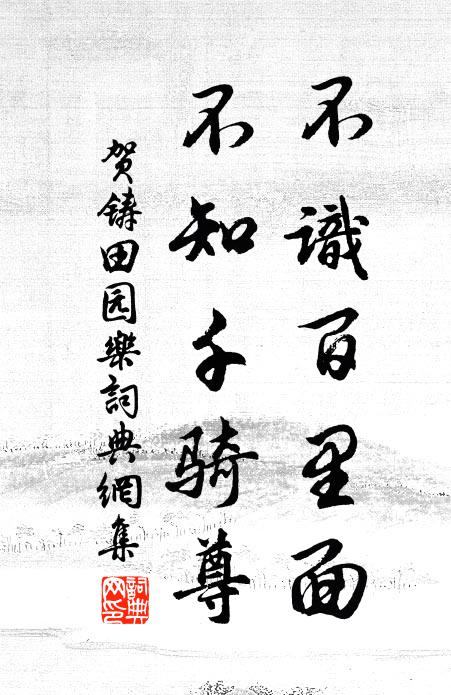 不識百里面
不知千骑尊
贺鑄田园樂詞典網集
詞典网印